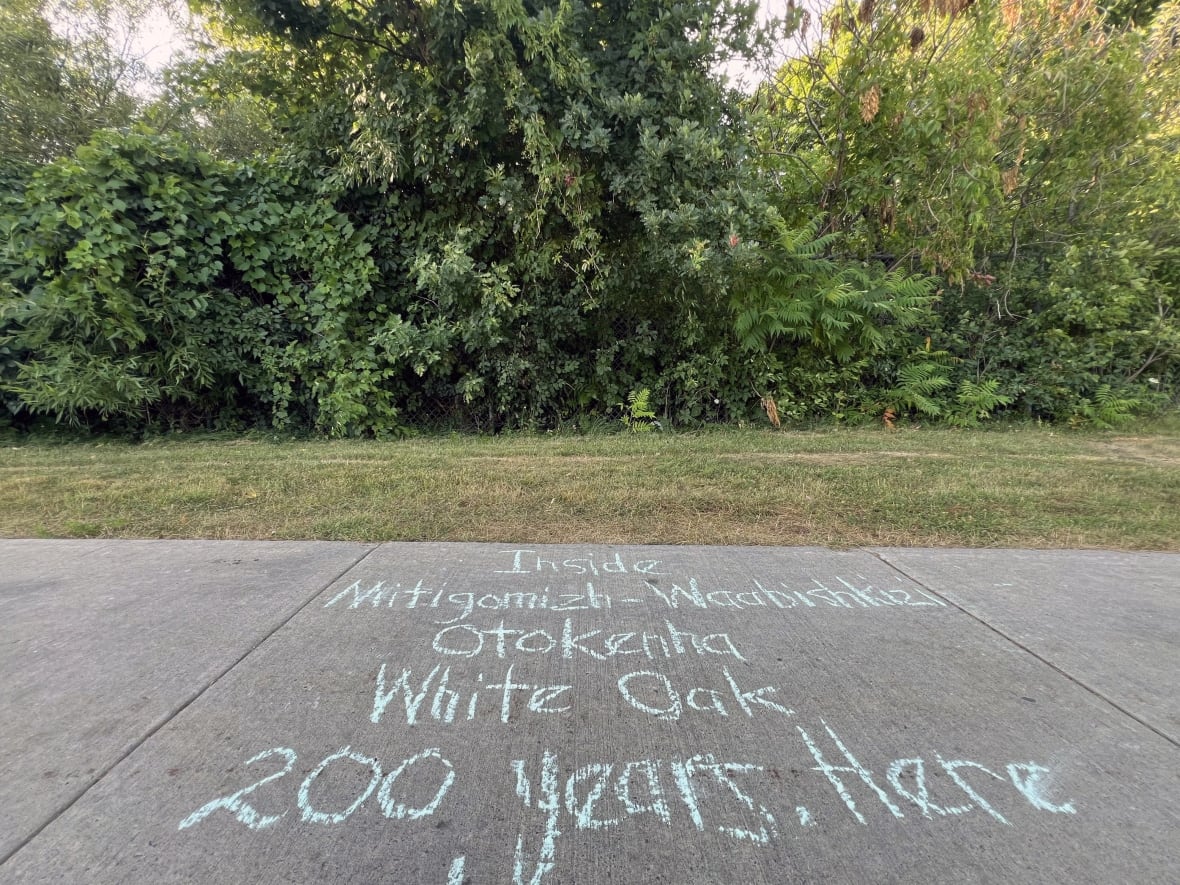 Inside
Mitigomizh-Waabishkizi
Otokenha
White Oak
200 years. Here